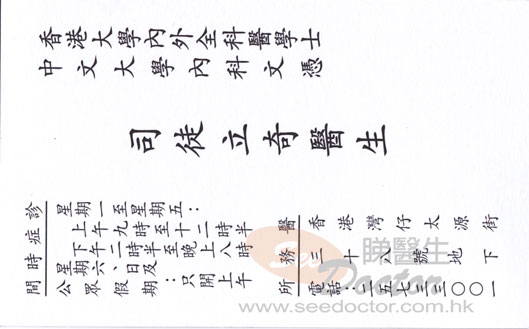 香港大學內外全科醫學士
中文大學內科文憑
司徒立奇醫生
診症時間
星期一至星期五：
上午九時至十二時半
下午二時半至晚上八時
星期六、日及
公眾假期：只開上午
醫務所
香港灣仔太源街
三十八號地下
電話：二五七三三〇〇一
睇醫生
SeeDoctor
www.seedoctor.com.hk